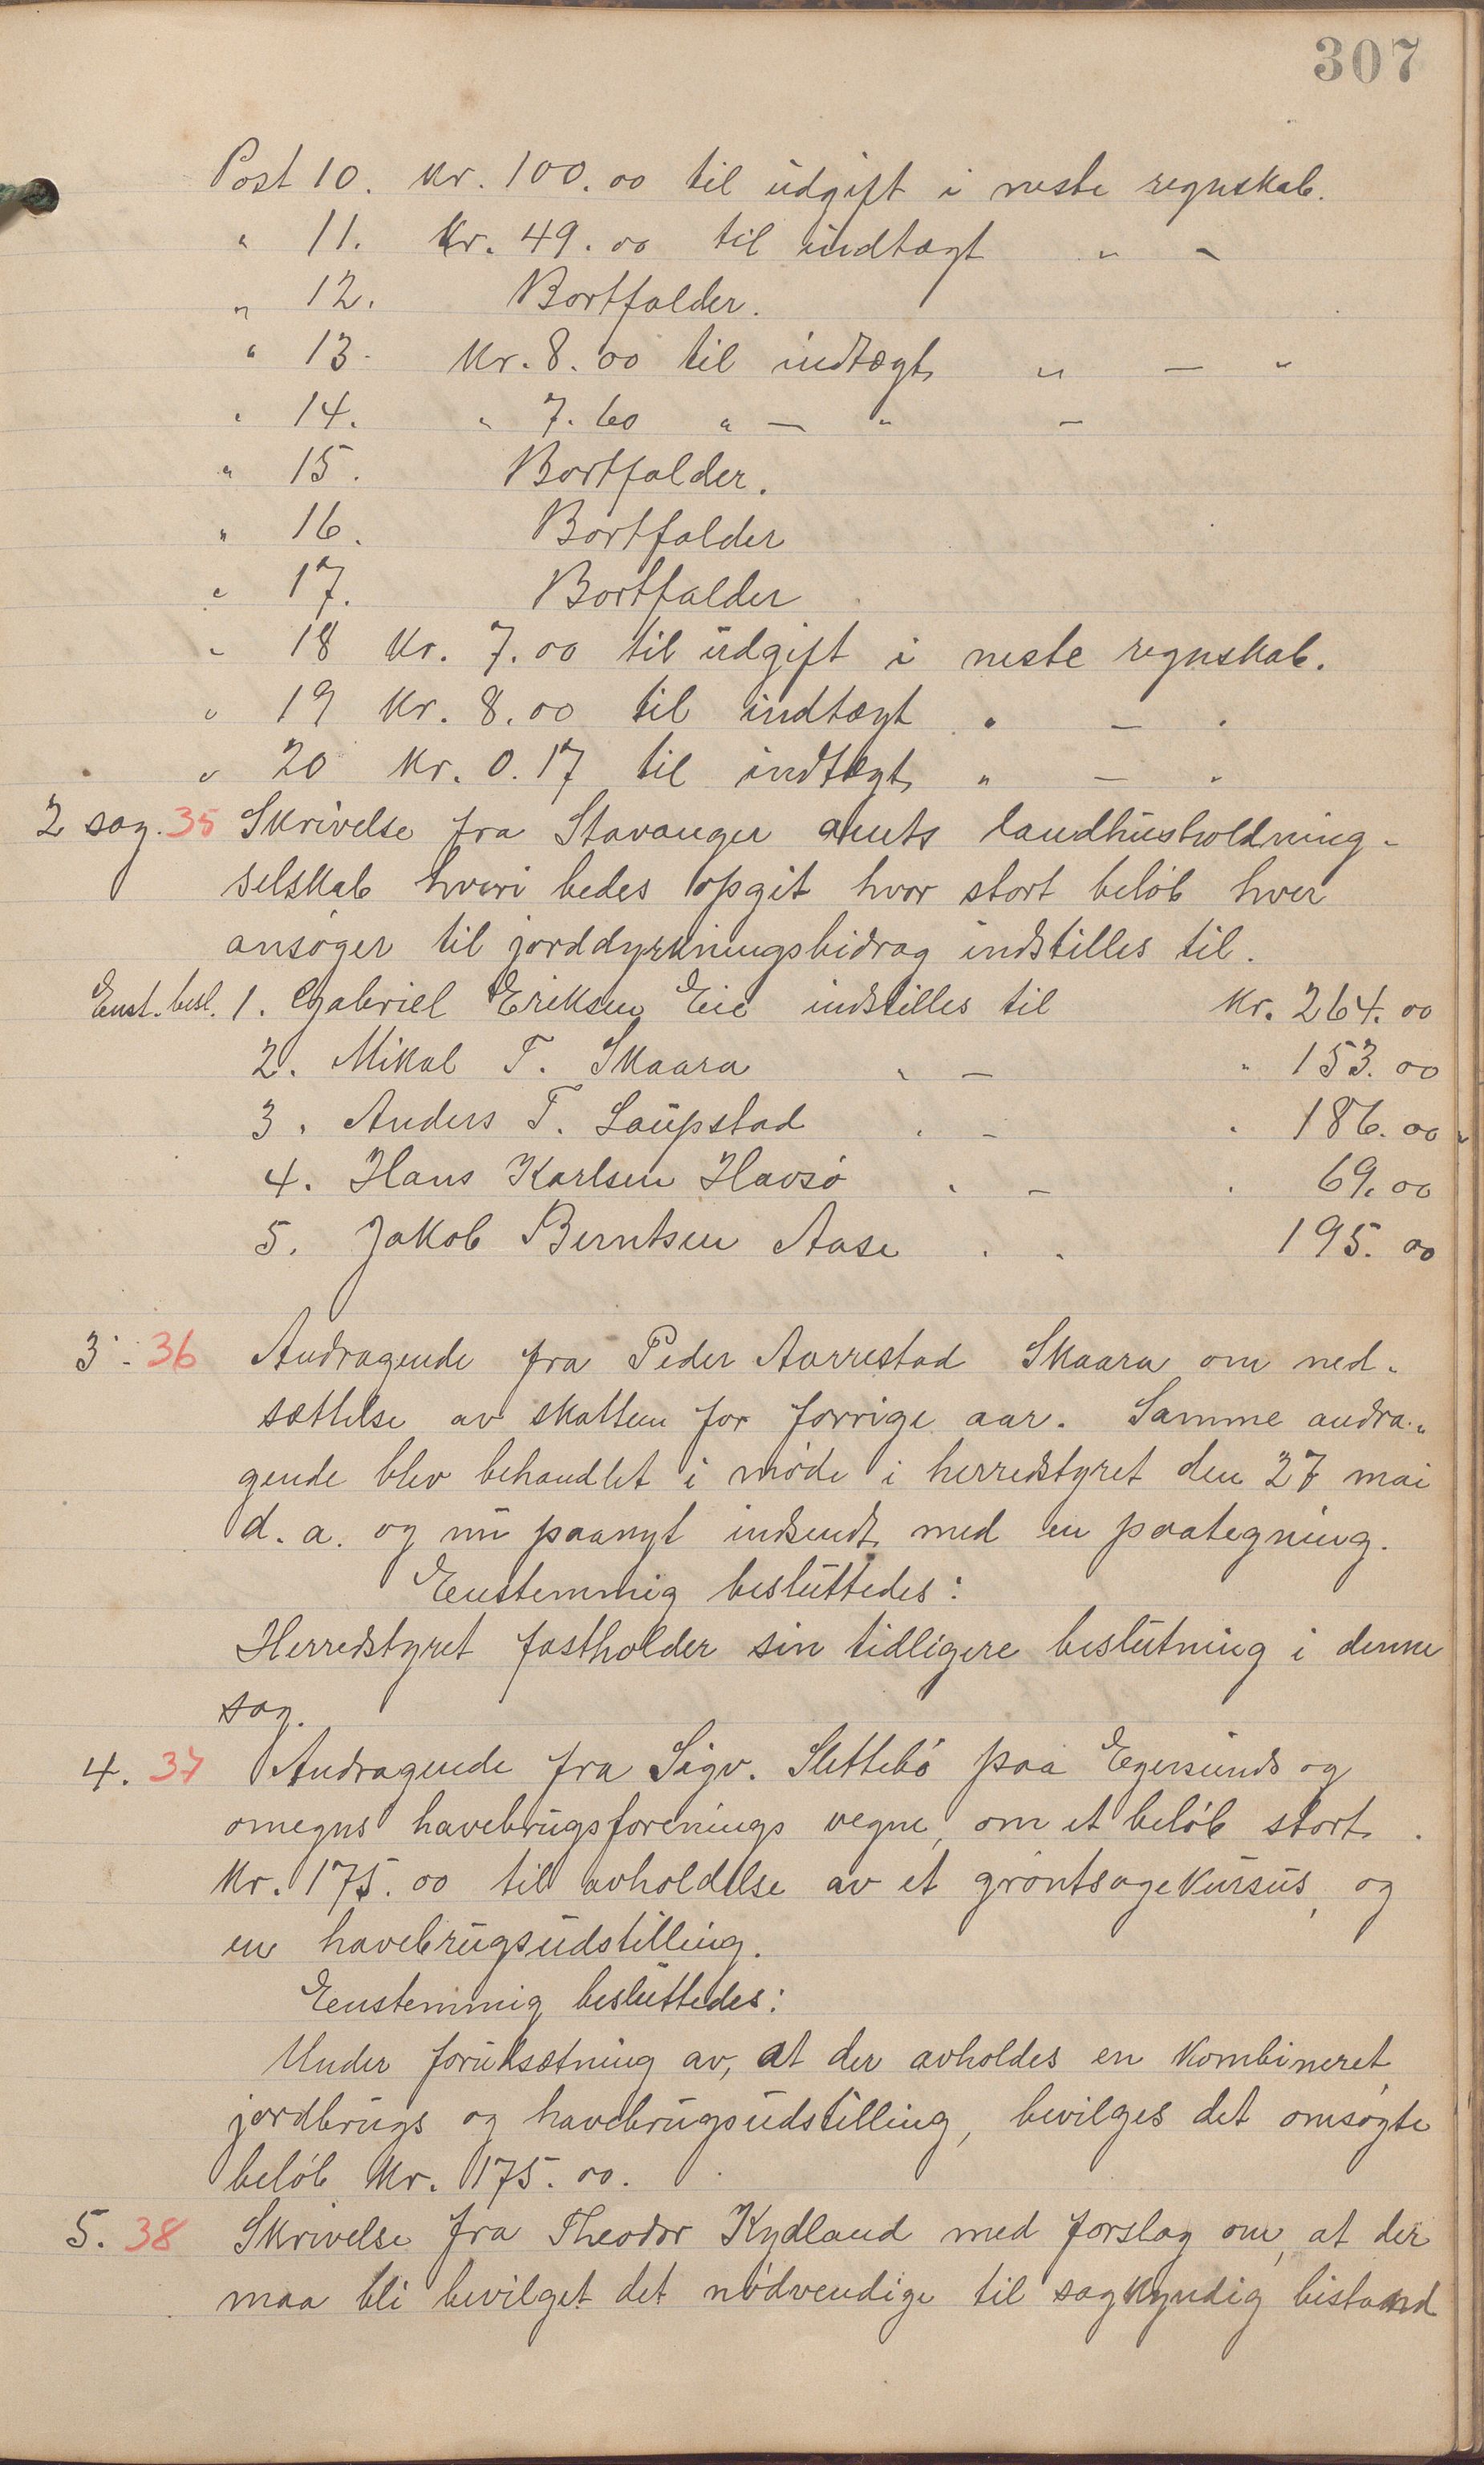 307
Post 10. Kr. 100.00 til udgift i neste regnskab.
" 11. Kr. 49.00 til indtægt " -
" 12. Bortfalder.
" 13. Kr. 8.00 til indtægt " — "
" 14. " 7.60 " — " —
" 15. Bortfalder.
" 16. Bortfalder
" 17. Bortfalder
" 18 Kr. 7.00 til udgift i neste regnskab.
" 19 Kr. 8.00 til indtægt " — "
" 20 Kr. 0.17 til indtægt " — "
2 sag. 35 Skrivelse fra Stavanger amts landhusholdning-
selskab hvori bedes opgit hvor stort beløb hver
ansøger til jorddyrkningsbidrag indstilles til.
Enst. besl. 1. Gabriel Eriksen Eie indstilles til Kr. 264.00
2. Mikal T. Skaara " — " 153.00
3. Anders T. Løupstad " — " 186.00
4. Hans Karlsen Havsø " — " 69.00
5. Jakob Berntsen Aase " " 195.00
3. 36 Andragende fra Peder Aarrestad Skaara om ned-
sættelse av skatten for forrige aar. Samme andra-
gende blev behandlet i møde i herredstyret den 27 mai
d. a. og nu paanyt indsendt med en paategning.
Eenstemmig besluttedes:
Herredstyret fastholder sin tidligere beslutning i denne
sag.
4. 37 Andragende fra Sigv. Slettebø paa Egersunds og
omegns havebrugsforenings vegne, om et beløb stort
Kr. 175.00 til avholdelse av et grøntsagekursus, og
en havebrugsudstilling.
Eenstemmig besluttedes:
Under forutsætning av, at der avholdes en kombineret
jordbrugs og havebrugsudstilling, bevilges det omsøgte
beløb Kr. 175.00.
5. 38 Skrivelse fra Theodor Kydland med forslag om, at der
maa bli bevilget det nødvendige til sagkyndig bistand